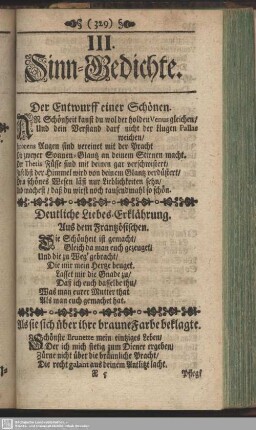 (329)
III.
Sinn-Gedichte.
Der Entwurff einer Schönen.
AN Schönheit kanst du wol der holden Venus gleichen/
Und dein Verstand darf nicht der klugen Pallas
weichen/
Augen sind vereinet mit der Pracht
zweyer Sonnen-Glantz an deinem Stirnen macht.
Der Thetis Füsse sind mit deinen gar verschwistert/
selbst der Himmel wird von deinem Glantz verdüstert/
schönes Wesen läst nur Lieblichkeiten sehn/
machest/ daß du wirst noch tausendmahl so schön.
Deutliche Liebes-Erklährung.
Aus dem Frantzösischen.
Die Schönheit ist gemacht/
Gleich da man euch gezeuget/
Und die zu Weg' gebracht/
Die mir mein Hertze beuget.
Lasset mir die Gnade zu/
Daß ich euch dasselbe thu/
Was man eurer Mutter that
Als man euch gemachet hat.
Als sie sich über ihre braune Farbe beklagte.
SChönste Brunette mein eintziges Leben/
Der ich mich stetig zum Diener ergeben/
Zürne nicht über die bräunliche Pracht/
Die recht galant aus deinem Antlitz lacht.
Pflegt